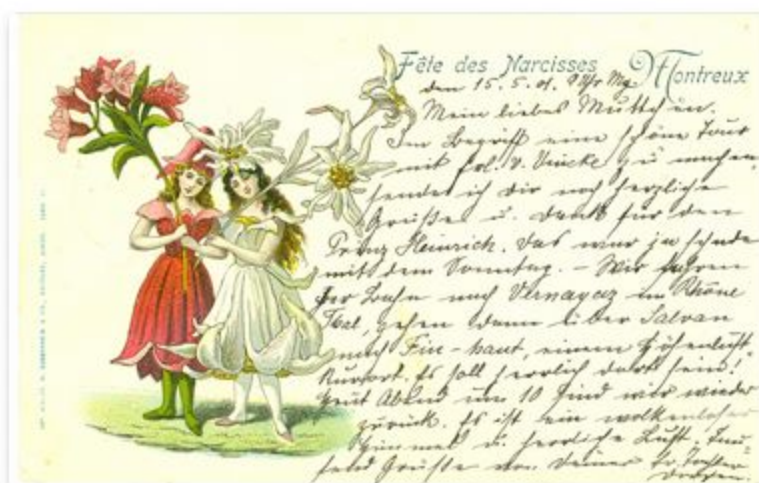 Fête des Narcisses Montreux
den 15. 5. 01. 9 Uhr Mg.
Mein liebes Mutty
Im Begriff eine schöne Tour
mit Frl. v. Vincke zu machen,
sendet ich dir noch herzliche
Grüße u. Dank für den
Prinz Heinrich. Das war ja schade
mit dem Sonntag. – Wir fahren
per Bahn nach Vernayaz im Rhône
Thal, gehen dann über Salvan
nach Fin-haut, einem Höhenluft-
Kurort. Es soll herrlich dort sein!
Heut Abend um 10 sind wir wieder
zurück. Es ist ein wolkenloser
Himmel u. herrliche Luft. Tau-
send Grüße von Deiner